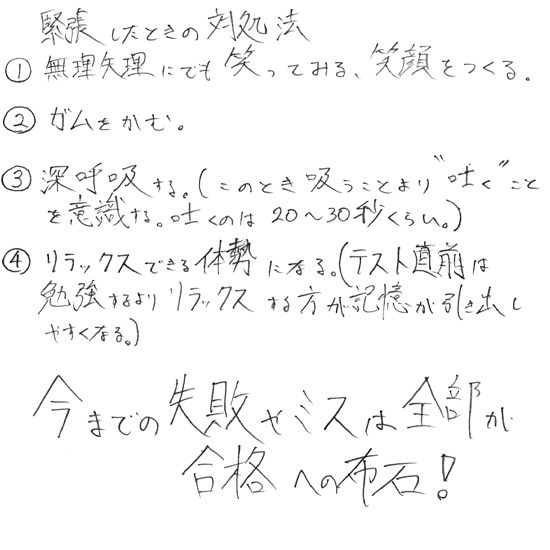 緊張したときの対処法
① 無理矢理にでも笑ってみる、笑顔をつくる。
② ガムをかむ。
③ 深呼吸する。(このとき吸うことより"吐く"こと
を意識する。吐くのは20～30秒くらい。)
④ リラックスできる体勢になる。(テスト直前は
勉強するよりリラックスする方が記憶が引き出し
やすくなる。)
今までの失敗やミスは全部が
合格への布石!